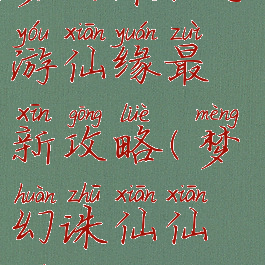 yóu xiān yuán zuì
游仙缘最
xīn gōng lüè mèng
新攻略(梦
huàn zhū xiān xiān
幻诛仙仙